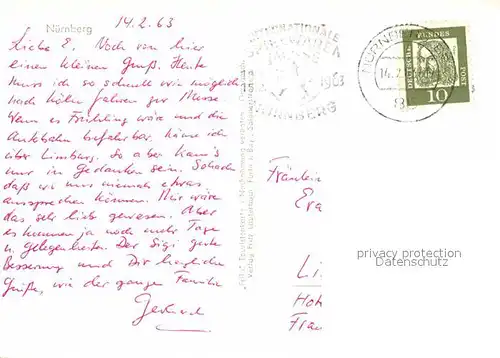 14.2.63
Nürnberg
Liebe E. Noch von hier
einen kleinen Gruß. Heute
muss ich so schnell wie möglich
nach Köln fahren zur Messe.
Wenn es Frühling wäre und die
Autobahn befahrbar, käme ich
über Limburg. So aber kann's
nur in Gedanken sein. Schade
daß wir uns niemals etwas
aussprechen können. Mir wäre
das sehr lieb gewesen. Aber
es kommen ja noch mehr Tage
u. Gelegenheiten. Der Sigi gute
Besserung und Dir herzliche
Grüße, wie der ganzen Familie
Gerhard
INTERNATIONALE
SPIELWAREN
MESSE
1963
NÜRNBERG
NÜRNBERG
14.2.
DEUTSCHE BUNDESPOST
10
Fräulein
Eva
Li
Hoh
Frau
privacy protection
Datenschutz